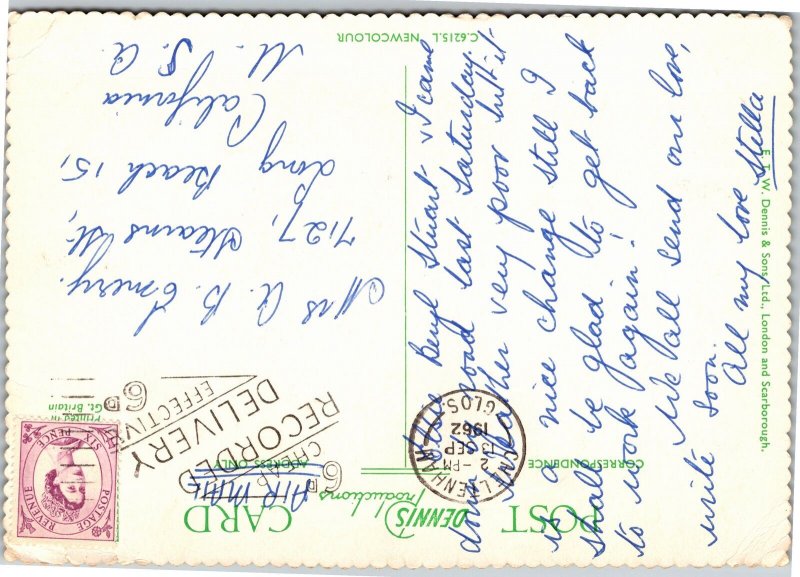 POST CARD
DENNIS
Productions
CORRESPONDENCE
ADDRESS ONLY
Printed in
Gt. Britain
AIR MAIL
POSTAGE REVENUE
SIX PENCE
6D CHEAP
RECORDED
DELIVERY
EFFECTIVE 6D
CHELTENHAM
2 - PM
13 SEP
1962
GLOS
Mrs A. B. Emery.
7127, Stearns St,
Long Beach 15,
California
U. S. A.
Beryl Stuart & I came
down to good last Saturday.
Weather very poor but it
is a nice change still I
shall be glad to get back
to work again!
We all send our love,
write soon.
All my love Stella
E. T. W. Dennis & Sons, Ltd., London and Scarborough.
C.6215.L NEWCOLOUR